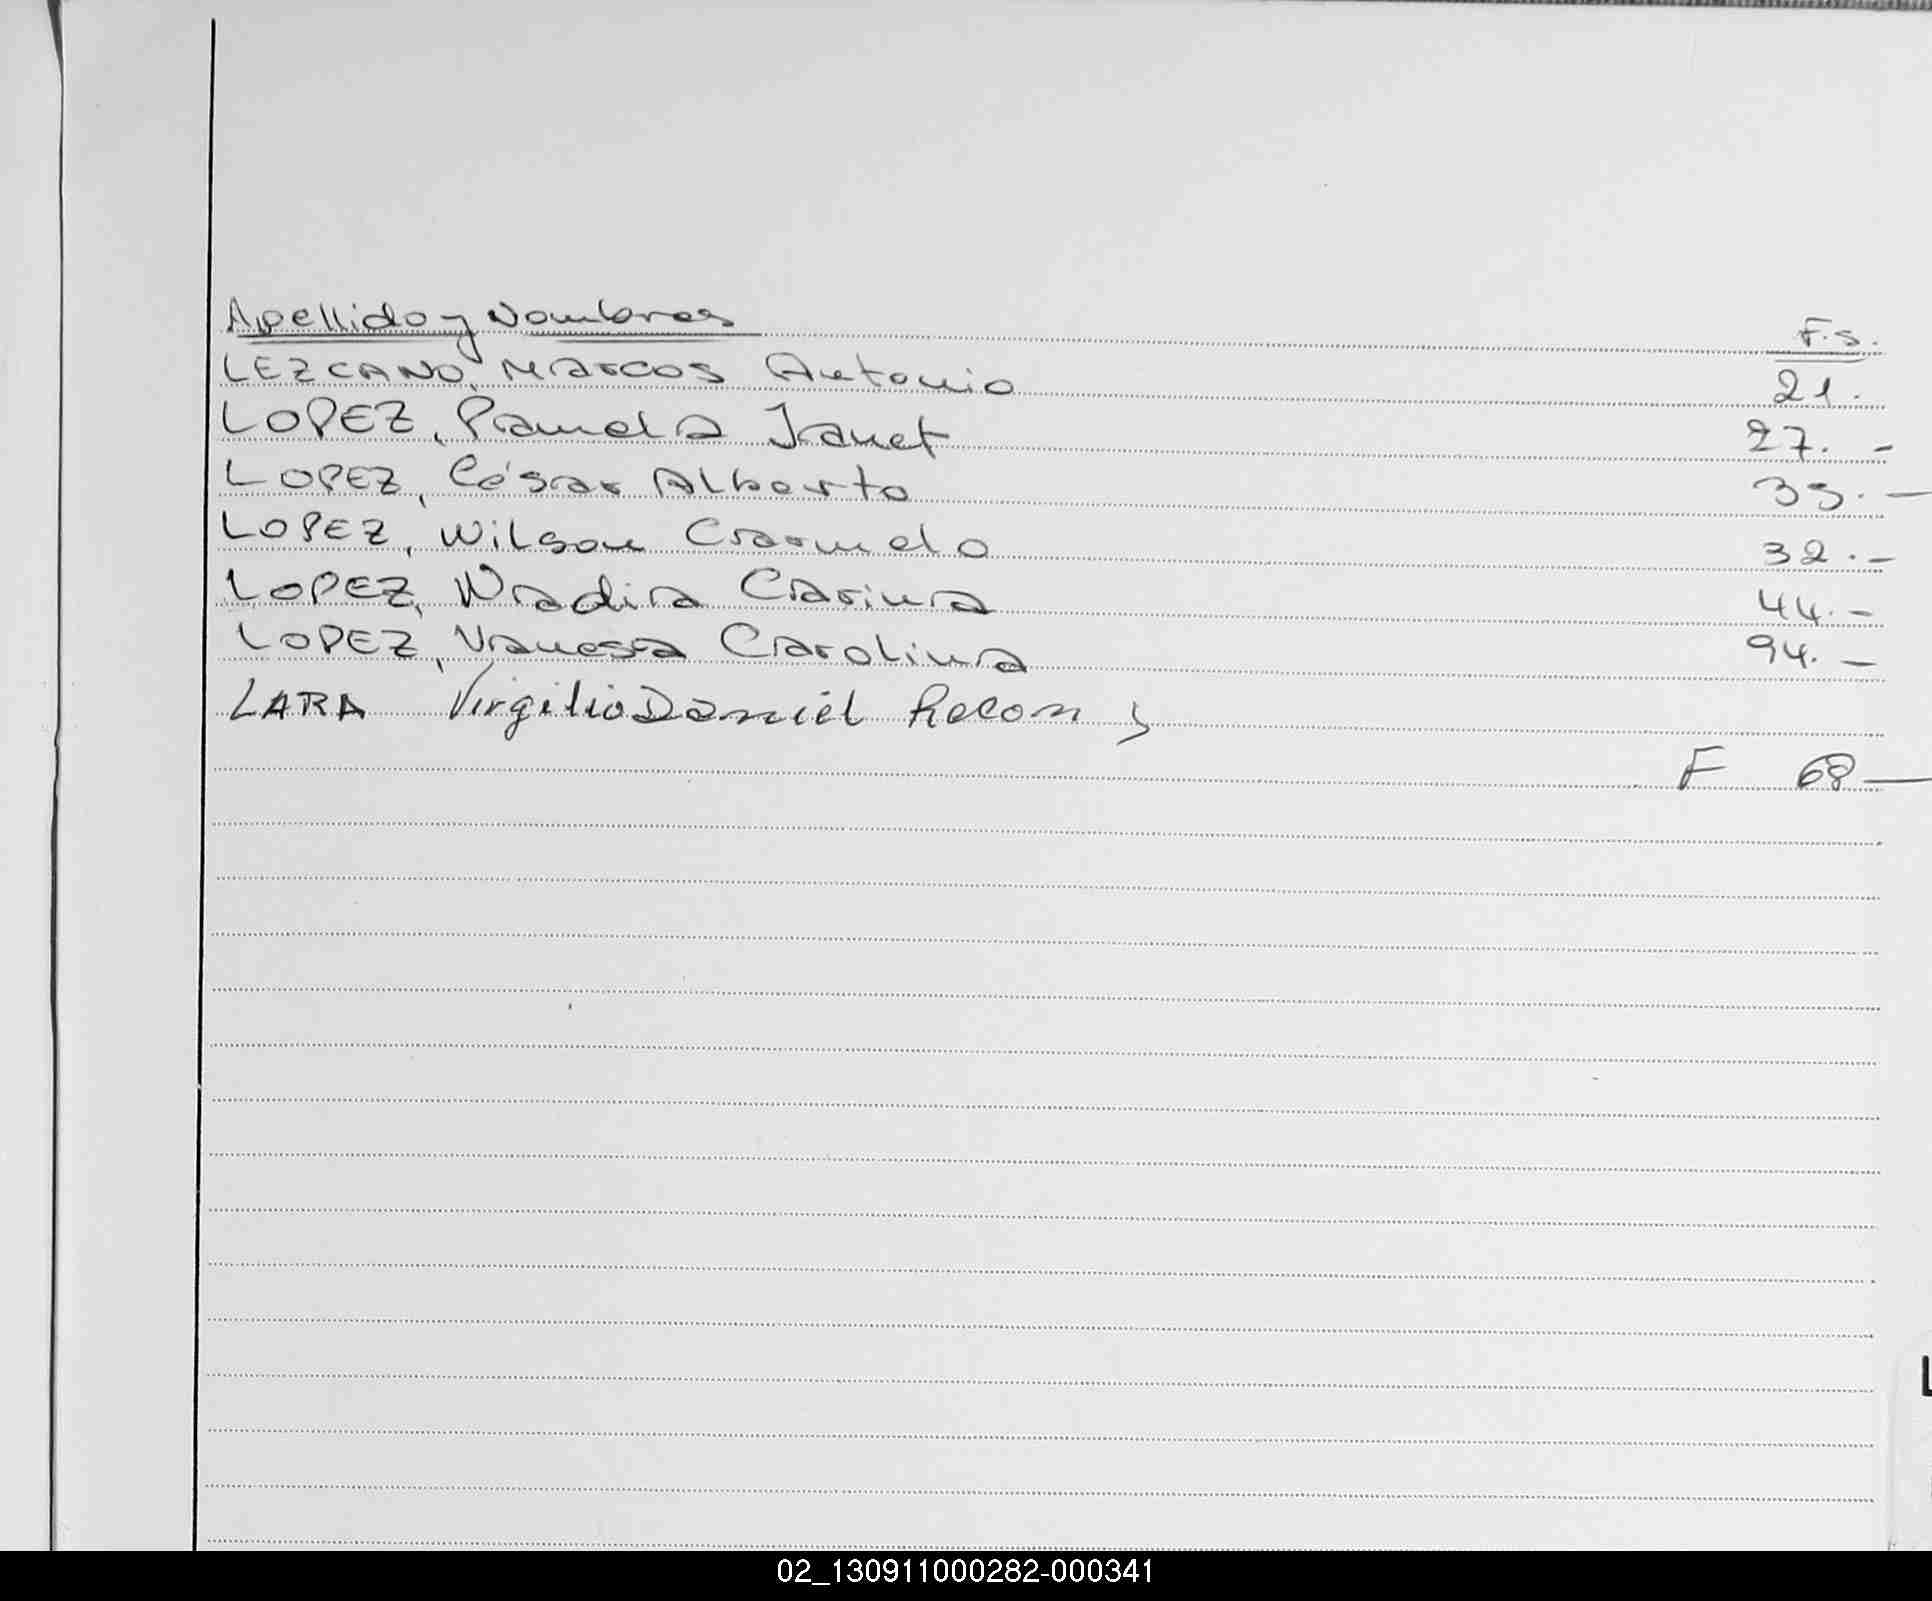 Apellido y Nombres F.S.
LEZCANO, Marcos Antonio 21.
LOPEZ, Pamela Janet 27. -
LOPEZ, César Alberto 35. -
LOPEZ, Wilson Carmelo 32. -
LOPEZ, Nadia Carina 44. -
LOPEZ, Vanessa Carolina 94. -
LARA Virgilio Daniel Recon
F 68 —
L
02_130911000282-000341